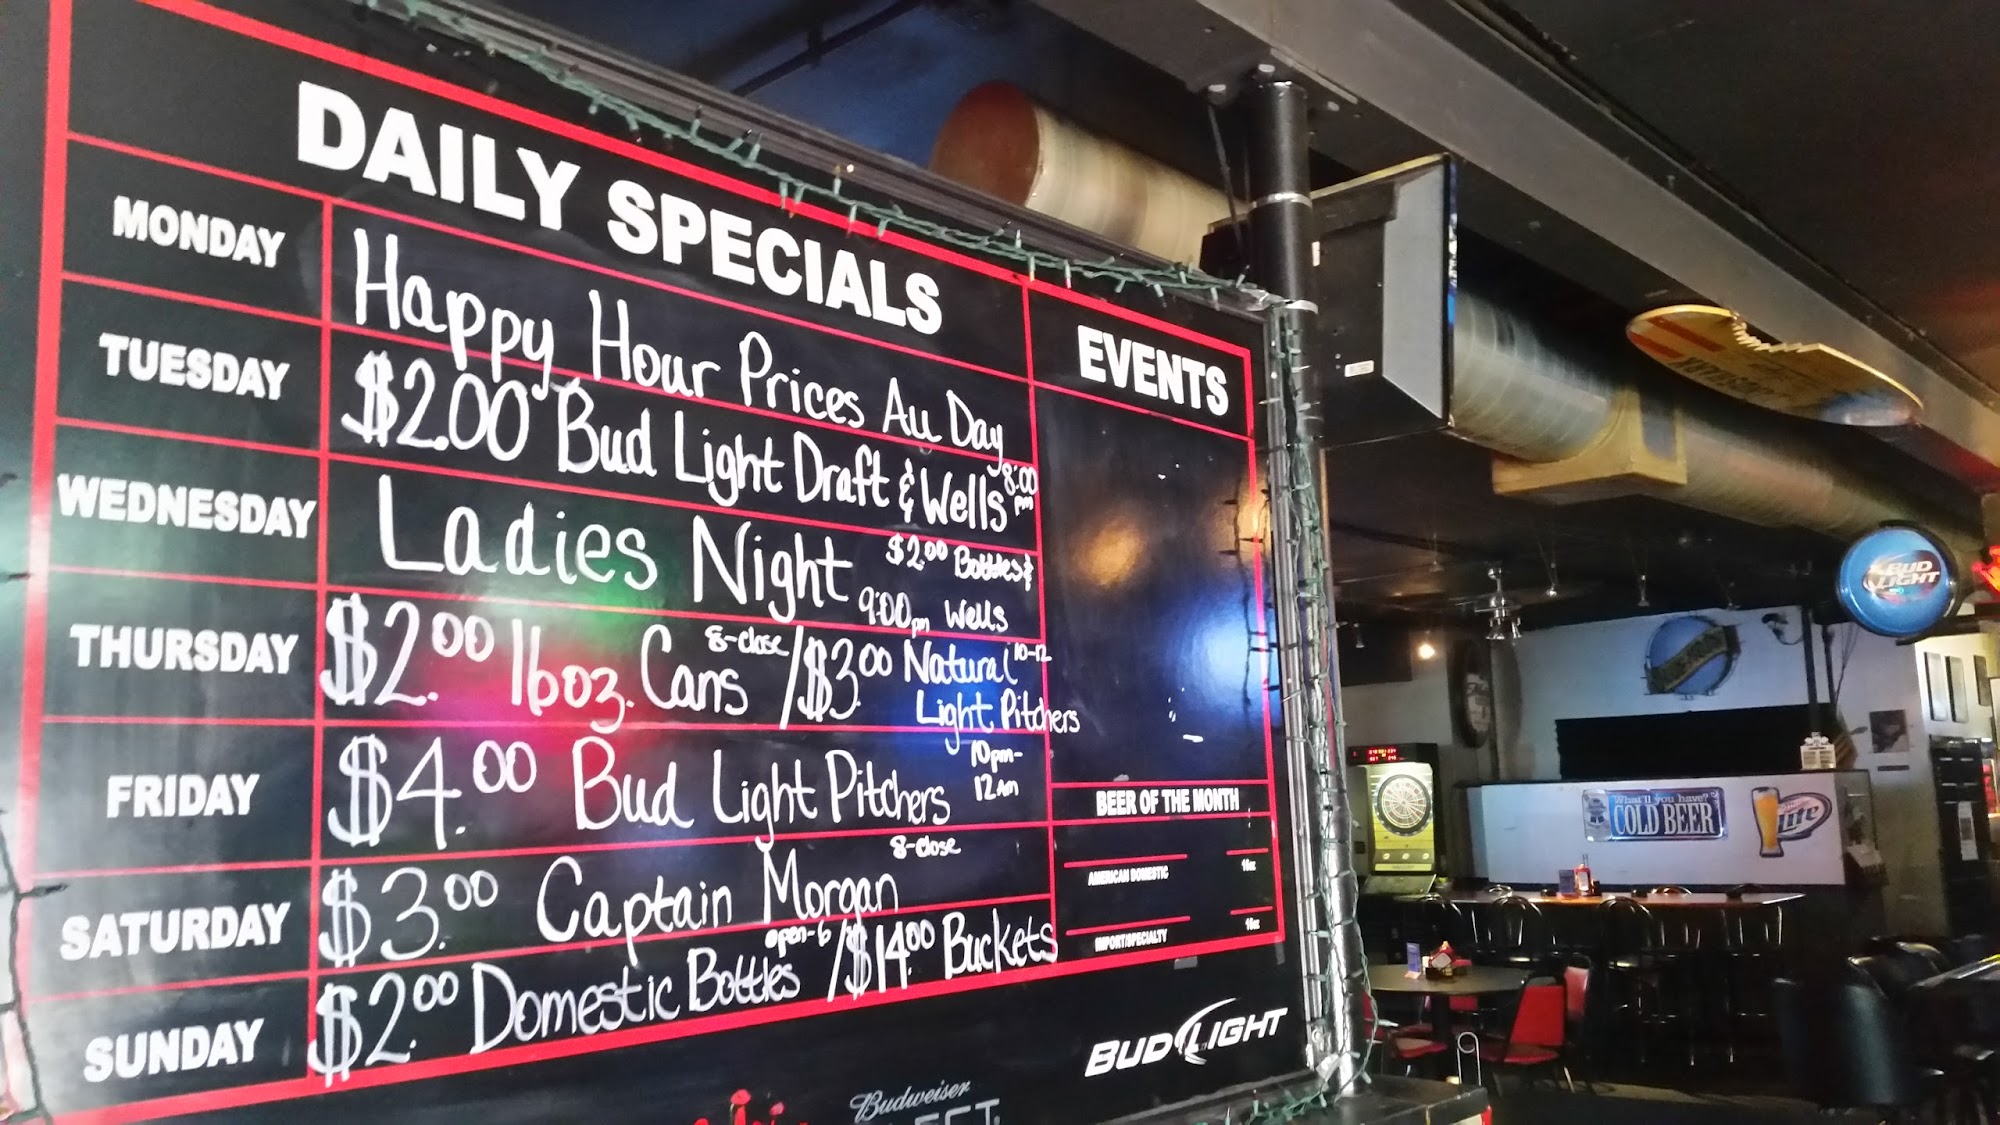 DAILY SPECIALS
MONDAY
Happy Hour Prices All Day
TUESDAY
$2.00 Bud Light Draft & Wells 8:00 pm
WEDNESDAY
Ladies Night 9:00pm $2.00 Bottles & Wells
THURSDAY
$2.00 16oz. Cans 8-close / $3.00 Natural 10-12
Light Pitchers
FRIDAY
$4.00 Bud Light Pitchers 10pm-
12am
SATURDAY
$3.00 Captain Morgan 8-close
SUNDAY
$2.00 Domestic Bottles open-6 / $14.00 Buckets
EVENTS
BEER OF THE MONTH
AMERICAN DOMESTIC 16oz
IMPORT/SPECIALTY 16oz
BUD LIGHT
Budweiser
SELECT
BUD
LIGHT
What'll you have?
COLD BEER
Lite